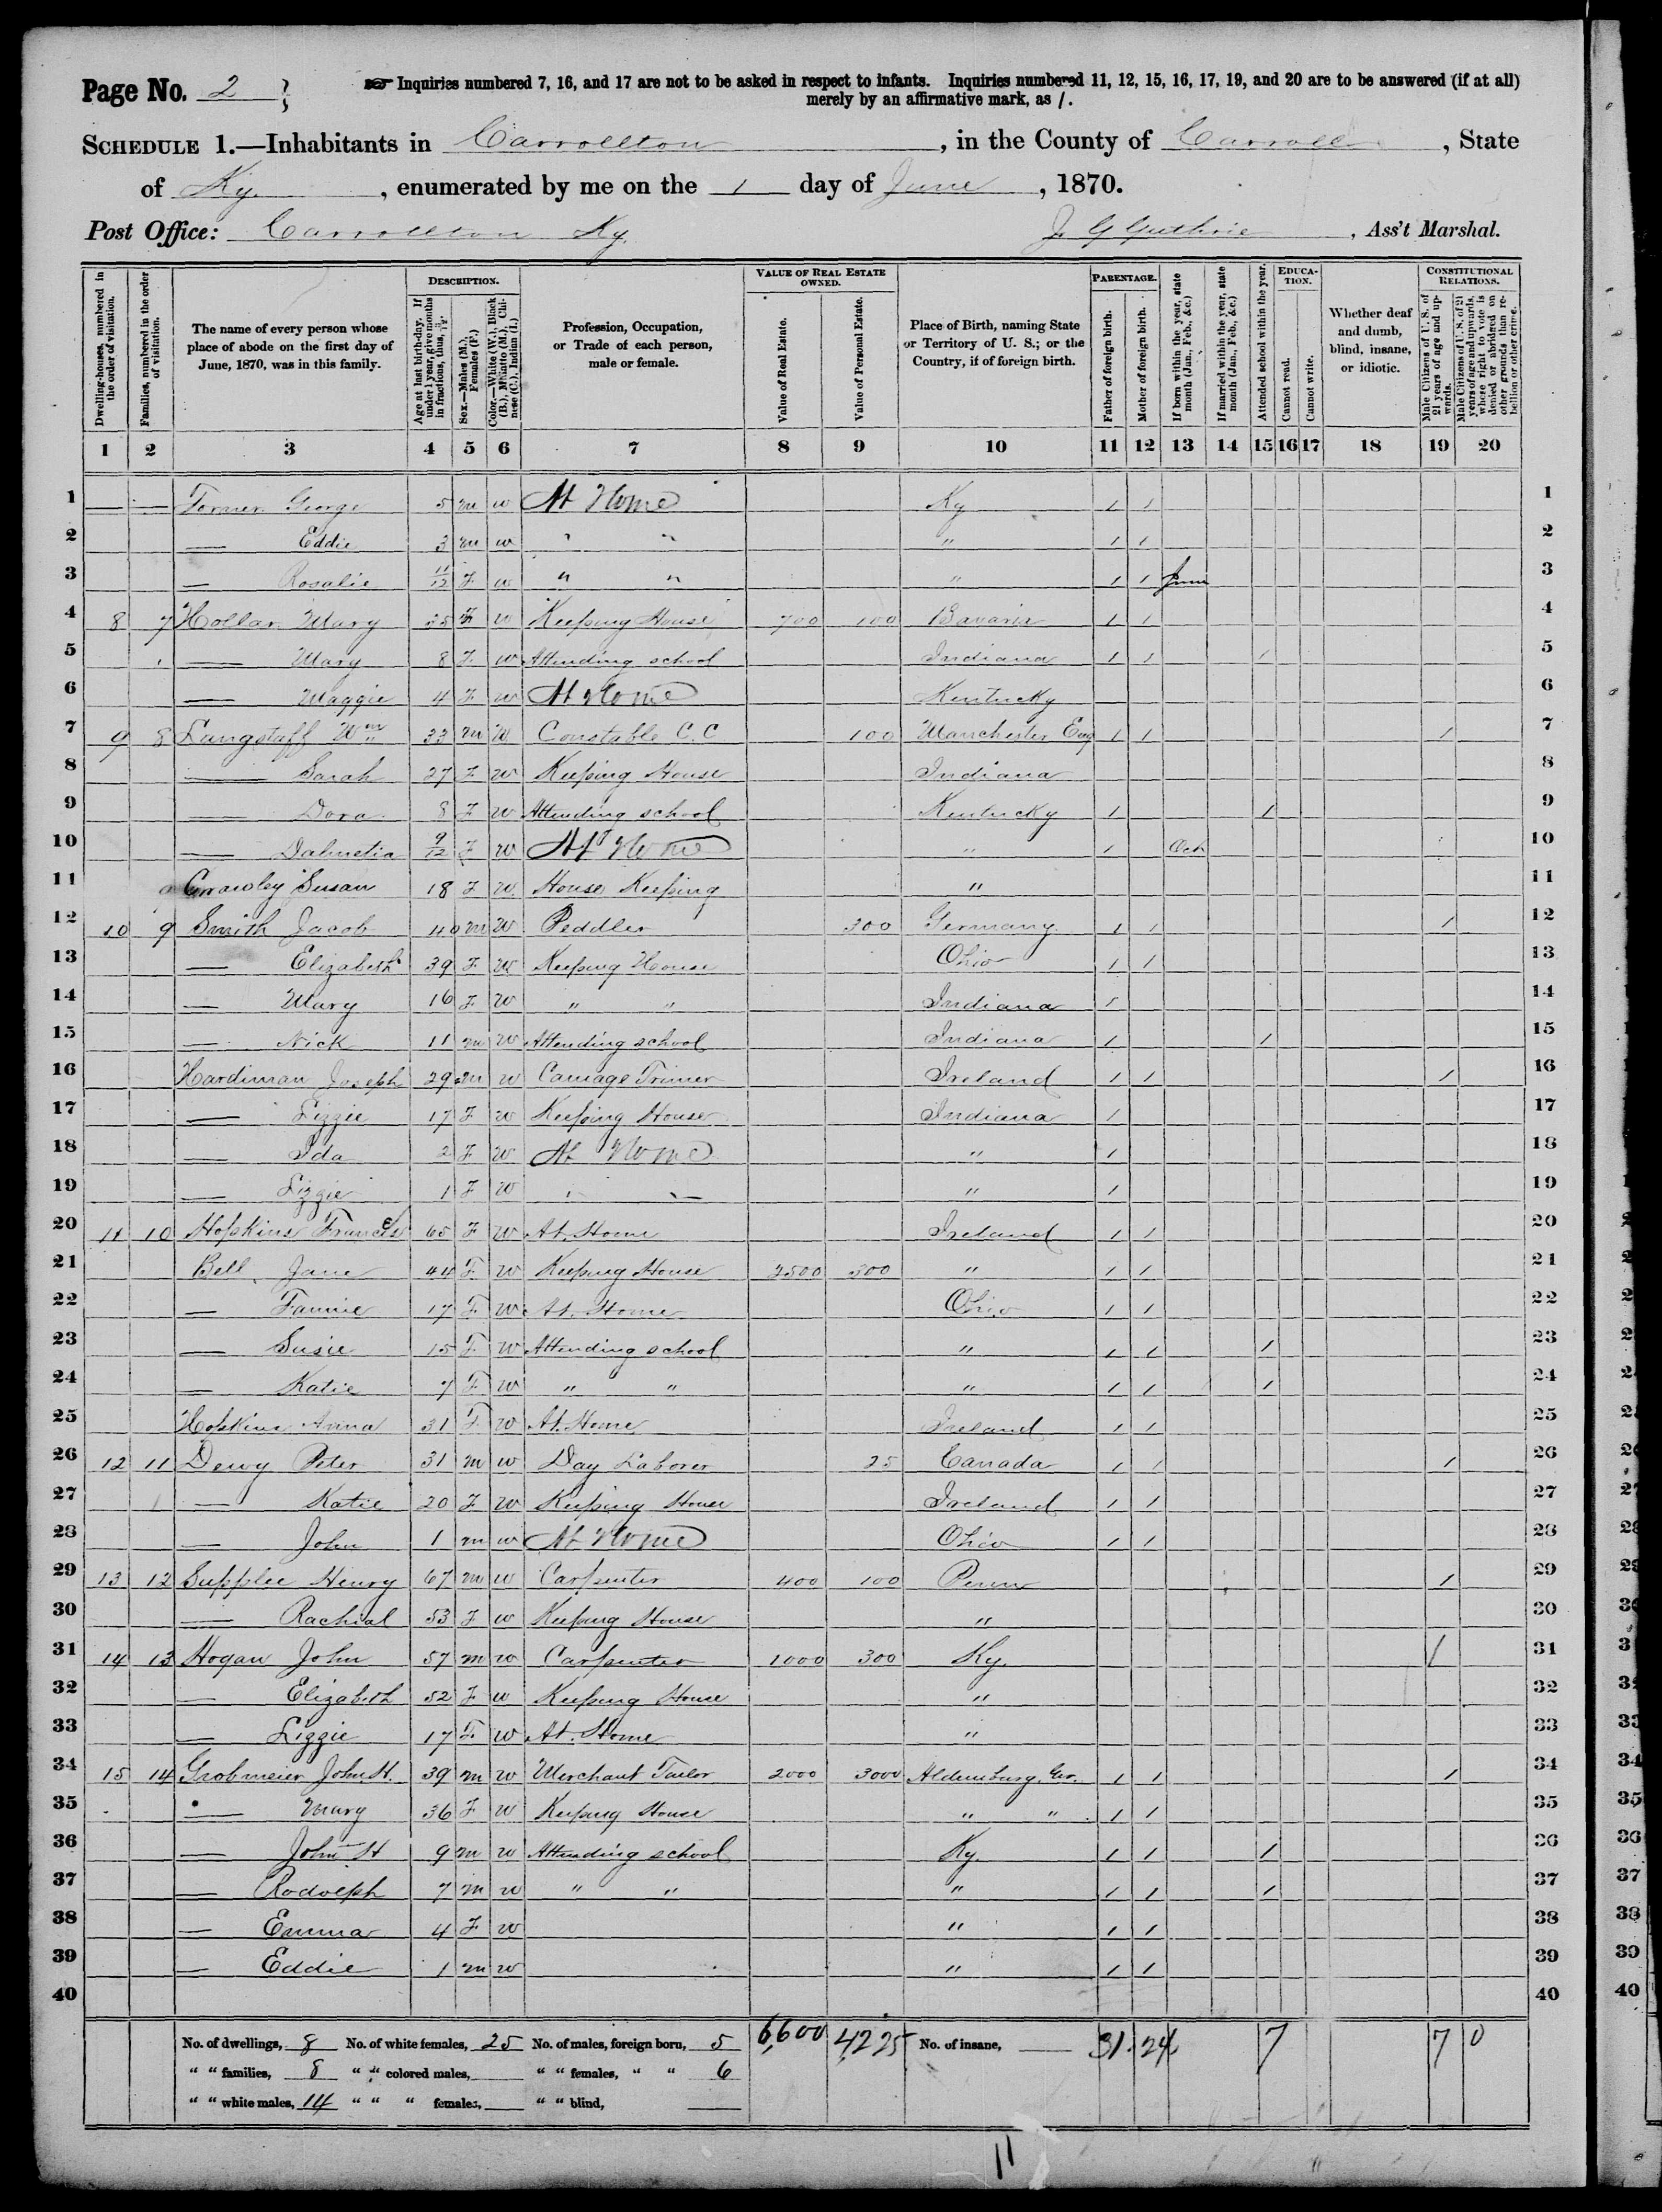 Page No. 2
Inquiries numbered 7, 16, and 17 are not to be asked in respect to infants. Inquiries numbered 11, 12, 15, 16, 17, 19, and 20 are to be answered (if at all)
merely by an affirmative mark, as /.
SCHEDULE 1.—Inhabitants in Carrollton, in the County of Carroll, State
of Ky., enumerated by me on the 1 day of June, 1870.
Post Office: Carrollton Ky. J G Guthrie, Ass't Marshal.
Dwelling-houses, numbered in the order of visitation.
Families, numbered in the order of visitation.
The name of every person whose place of abode on the first day of June, 1870, was in this family.
DESCRIPTION.
Age at last birth-day. If under 1 year, give months in fractions, thus, 3/12.
Sex.—Males (M.), Females (F.)
Color.—White (W.), Black (B.), Mulatto (M.), Chinese (C.), Indian (I.)
Profession, Occupation, or Trade of each person, male or female.
VALUE OF REAL ESTATE OWNED.
Value of Real Estate.
Value of Personal Estate.
Place of Birth, naming State or Territory of U. S.; or the Country, if of foreign birth.
PARENTAGE.
Father of foreign birth.
Mother of foreign birth.
If born within the year, state month (Jan., Feb., &c.)
If married within the year, state month (Jan., Feb., &c.)
Attended school within the year.
EDUCATION.
Cannot read.
Cannot write.
Whether deaf and dumb, blind, insane, or idiotic.
CONSTITUTIONAL RELATIONS.
Male Citizens of U. S. of 21 years of age and upwards.
Male Citizens of U. S. of 21 years of age and upwards, whose right to vote is denied or abridged on other grounds than rebellion or other crime.
1 2 3 4 5 6 7 8 9 10 11 12 13 14 15 16 17 18 19 20
1 — — George 5 m w At Home Ky / / 1
2 — Eddie 3 m w " " " / / 2
3 — Rosalie 11/12 F w " " " / / June 3
4 8 7 Hollar Mary F w Keeping House 700 100 Bavaria / / 4
5 — Mary 8 F w Attending school Indiana / / / 5
6 — Maggie 4 F w At Home Kentucky 6
7 9 8 Langstaff Wm 33 m W Constable C. C 100 Manchester Eng / / / 7
8 — Sarah 27 F w Keeping House Indiana 8
9 — Dora 8 F w Attending school Kentucky / / 9
10 — 9/12 F w At Home " / Oct 10
11 Crawley Susan 18 F w House Keeping " 11
12 10 9 Smith Jacob 40 m W Peddler 200 Germany / / / 12
13 — Elizabeth 39 F W Keeping House Ohio / / 13
14 — Mary 16 F W " " Indiana / 14
15 — Nick 11 m w Attending school Indiana / / 15
16 Hardiman Joseph 29 m w Carriage Trimer Ireland / / / 16
17 — Lizzie 17 F w Keeping House Indiana / 17
18 — Ida 2 F W At Home " / 18
19 — Lizzie 1 F W " " " / 19
20 11 10 Hopkins Frances 65 F W At Home Ireland / / 20
21 Bell Jane 44 F w Keeping House 2500 300 " / / 21
22 — Fannie 17 F w At Home Ohio / / 22
23 — Susie 15 F W Attending school " / / / 23
24 — Katie 7 F w " " " / / / 24
25 Hopkins Anna 31 F w At Home Ireland / / 25
26 12 11 Dewy Peter 31 m w Day Laborer 25 Canada / / / 26
27 — Katie 20 F w Keeping House Ireland / / 27
28 — John 1 m w At Home Ohio / / 28
29 13 12 Supplee Henry 67 m w Carpenter 400 100 Penn / 29
30 — Rachial 53 F w Keeping House " 30
31 14 13 Hogan John 57 m w Carpenter 1000 300 Ky / 31
32 — Elizabeth 52 F w Keeping House " 32
33 — Lizzie 17 F W At Home " 33
34 15 14 Grobmeier John H. 39 m w Merchant Tailor 2000 3000 Aldenburg, Ger. / / / 34
35 — Mary 36 F w Keeping House " " / / 35
36 — John H 9 m w Attending school Ky. / / / 36
37 — Rodolph 7 m w " " " / / / 37
38 — Emma 4 F w " / / 38
39 — Eddie 1 m w " / / 39
40 40
No. of dwellings, 8 No. of white females, 25 No. of males, foreign born, 5 6,600 4,225 No. of insane, — 31 24 7 7 0
" " families, 8 " " colored males, " " females, " " 6
" " white males, 14 " " " females, " " blind,
11